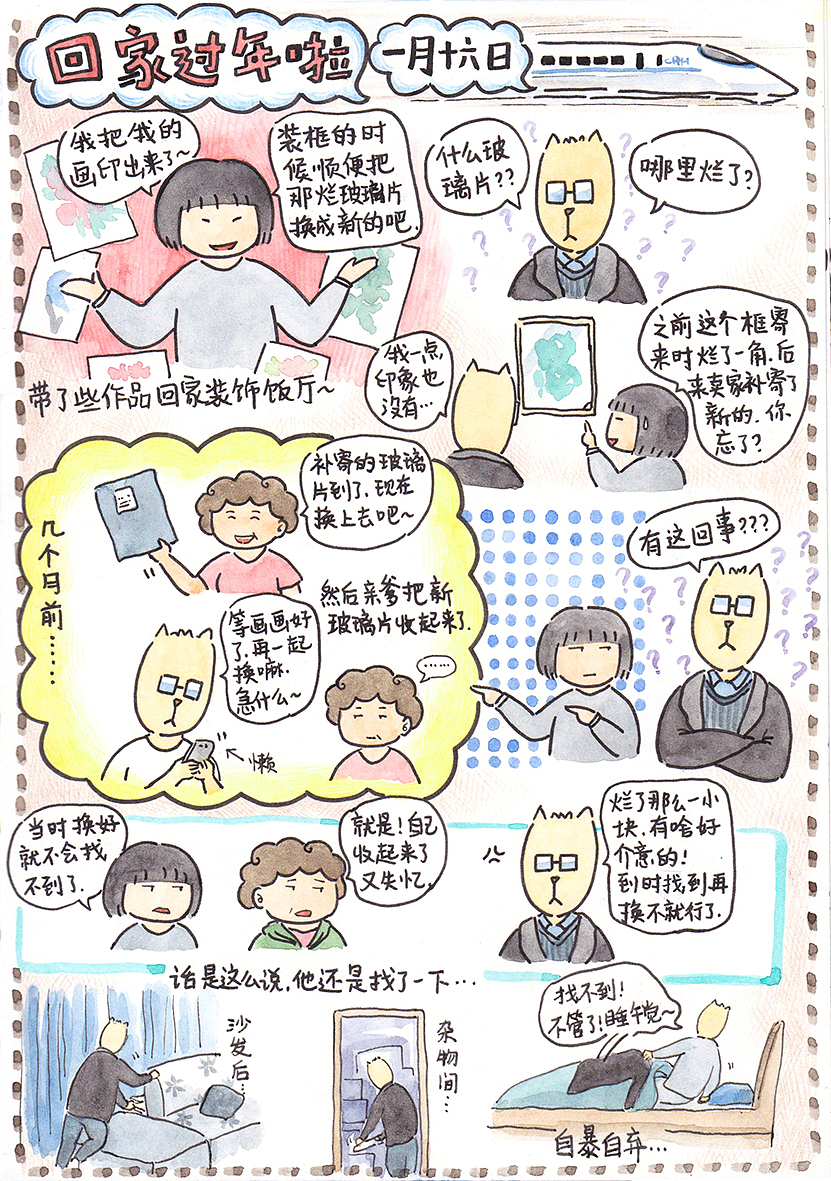 回家过年啦
一月十六日
CRH
我把我的
画印出来了~
装框的时
候顺便把
那烂玻璃片
换成新的吧.
什么玻
璃片??
哪里烂了?
带了些作品回家装饰饭厅~
我一点
印象也
没有…
之前这个框寄
来时烂了一角.后
来卖家补寄了
新的.你
忘了?
几个月前……
补寄的玻璃
片到了.现在
换上去吧~
然后亲爹把新
玻璃片收起来了.
等画画好
了.再一起
换嘛.
急什么~
懒
……
有这回事???
当时换好
就不会找
不到了.
就是!自己
收起来了
又失忆.
烂了那么一小
块.有啥好
介意的!
到时找到再
换不就行了.
话是这么说,他还是找了一下…
沙发后…
杂物间…
找不到!
不管了!睡午觉~
自暴自弃…